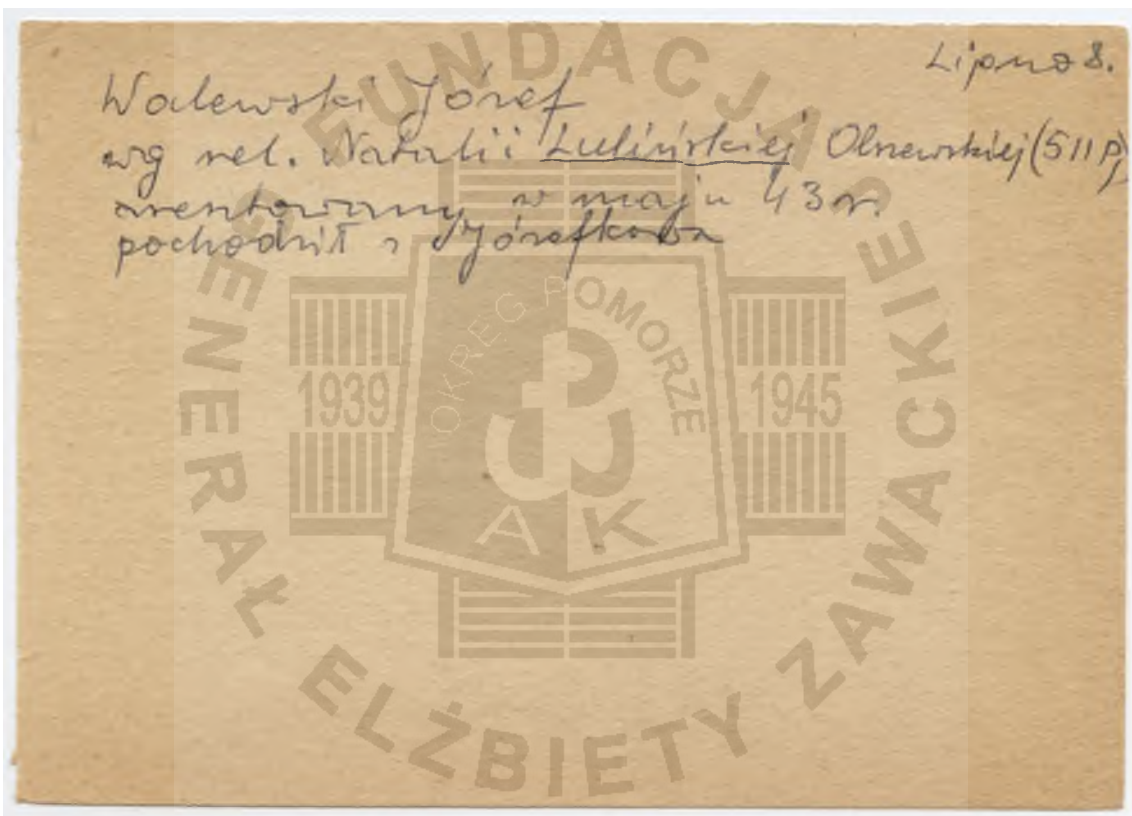 Lipno 8.
Walewski Józef
wg rel. Natalii Lulińskiej Olszewskiej (511 P)
aresztowany w maju 43 r.
pochodził z Józefkowa
FUNDACJA
GENERAŁ ELŻBIETY ZAWACKIEJ
OKRĘG POMORZE
1939
1945
A K